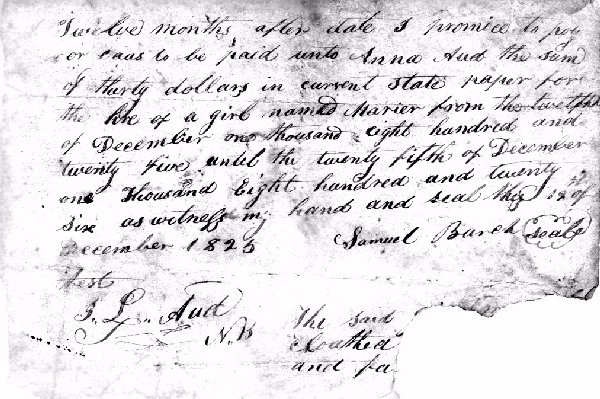 Twelve months after date I promice to pay
or caus to be paid unto Anna Aud the sum
of thirty dollars in current state paper for
the hire of a girl named Marier from the twelfth
of December one thousand eight hundred and
twenty five until the twenty fifth of December
one Thousand Eight hundred and twenty
six as witness my hand and seal this 12th of
December 1825 Samuel Burch seal
test
Aud
NB The said
cloathed
and pa